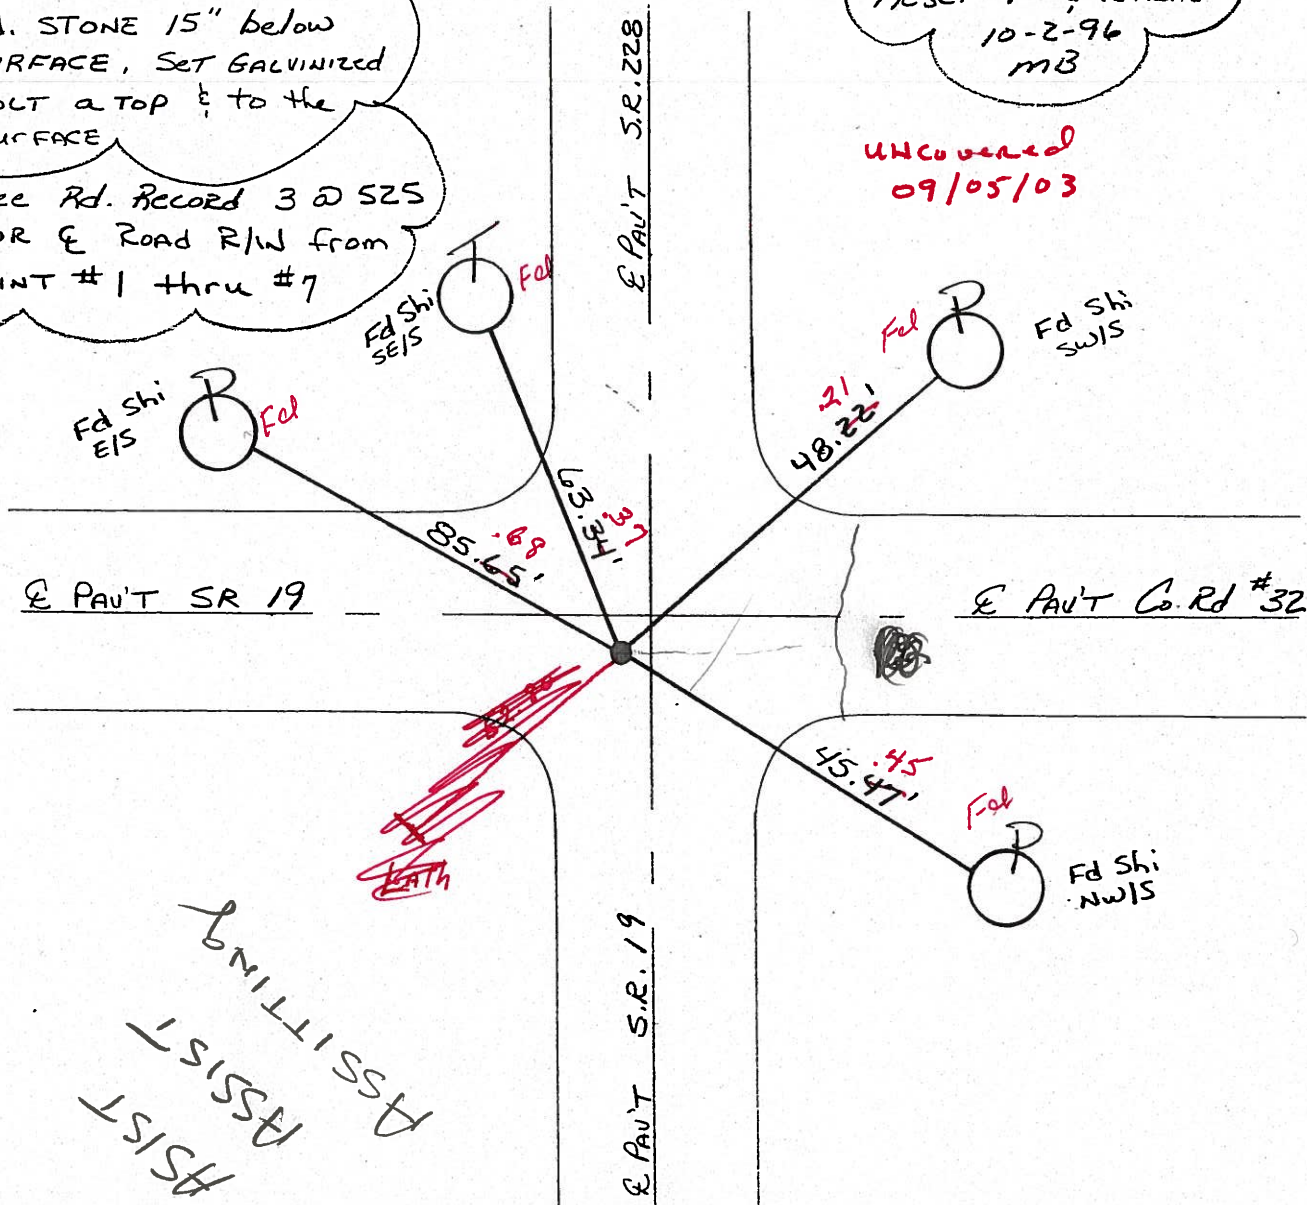 STONE 15" below
SURFACE, SET GALVINIZED
BOLT a TOP & to the
SURFACE
See Rd. Record 3 @ 525
FOR ℄ ROAD R/W from
POINT #1 thru #7
10-2-96
MB
UNcovered
09/05/03
℄ PAV'T S.R. 228
T
Fd
Fd Shi
SE/S
P
Fd
Fd Shi
E/S
P
Fd
Fd Shi
SW/S
.21
48.22'
63.34'
.37
85.65'
.68
℄ PAV'T SR 19
℄ PAV'T Co. Rd #32
45.47'
.45
Fd
P
Fd Shi
NW/S
LATH
℄ PAV'T S.R. 19
ASSITTING
ASSIST
ASIST